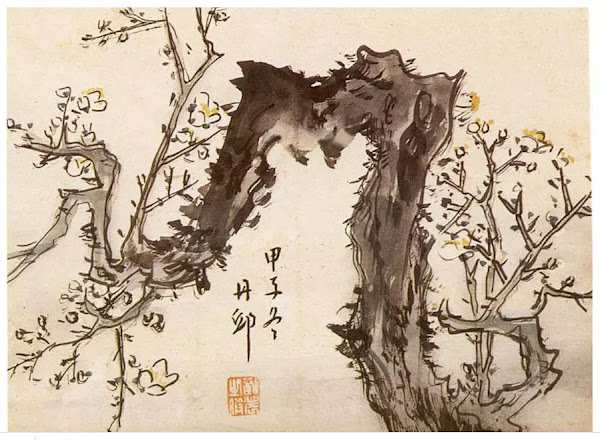 甲子冬
丹邱